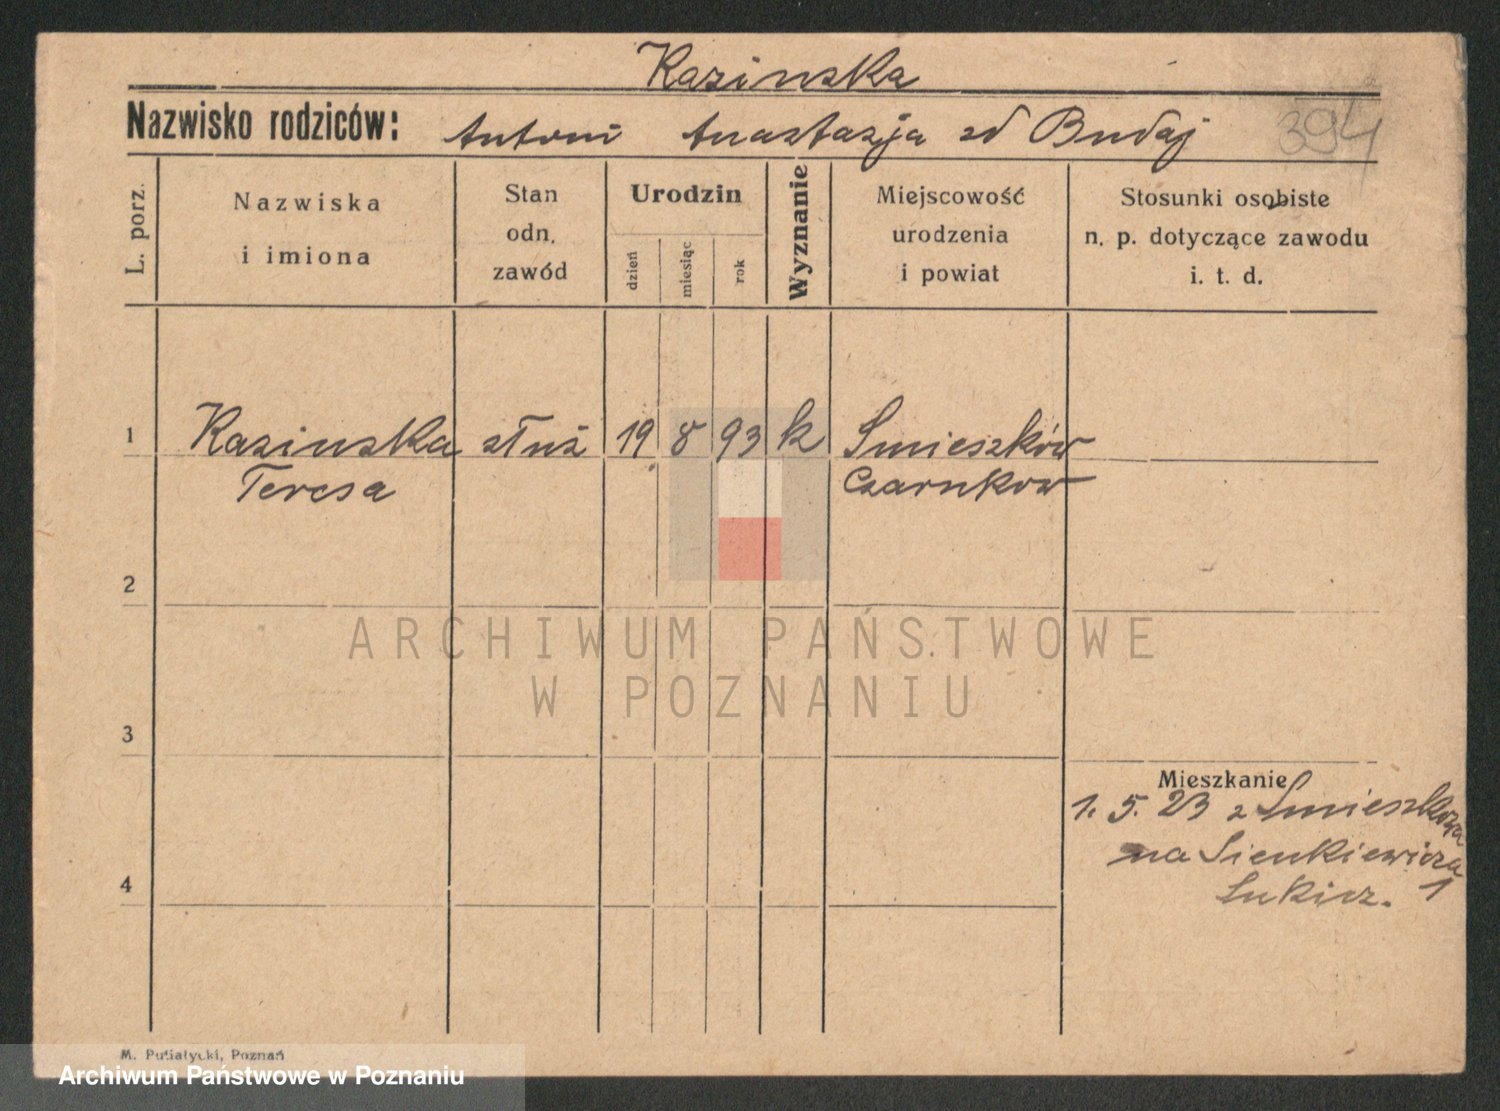 Kazinska
Nazwisko rodziców: Antoni Anastazja zd Budaj
394
L. porz.
Nazwiska
i imiona
Stan
odn.
zawód
Urodzin
dzień
miesiąc
rok
Wyznanie
Miejscowość
urodzenia
i powiat
Stosunki osobiste
n. p. dotyczące zawodu
i. t. d.
1 Kazinska służ 19 8 93 k Smieszków
Teresa Czarnkow
2
ARCHIWUM PAŃSTWOWE
W POZNANIU
3
Mieszkanie
1. 5. 23 z Smieszkowa
na Sienkiewicza 1
4
M. Putiatycki, Poznań
Archiwum Państwowe w Poznaniu